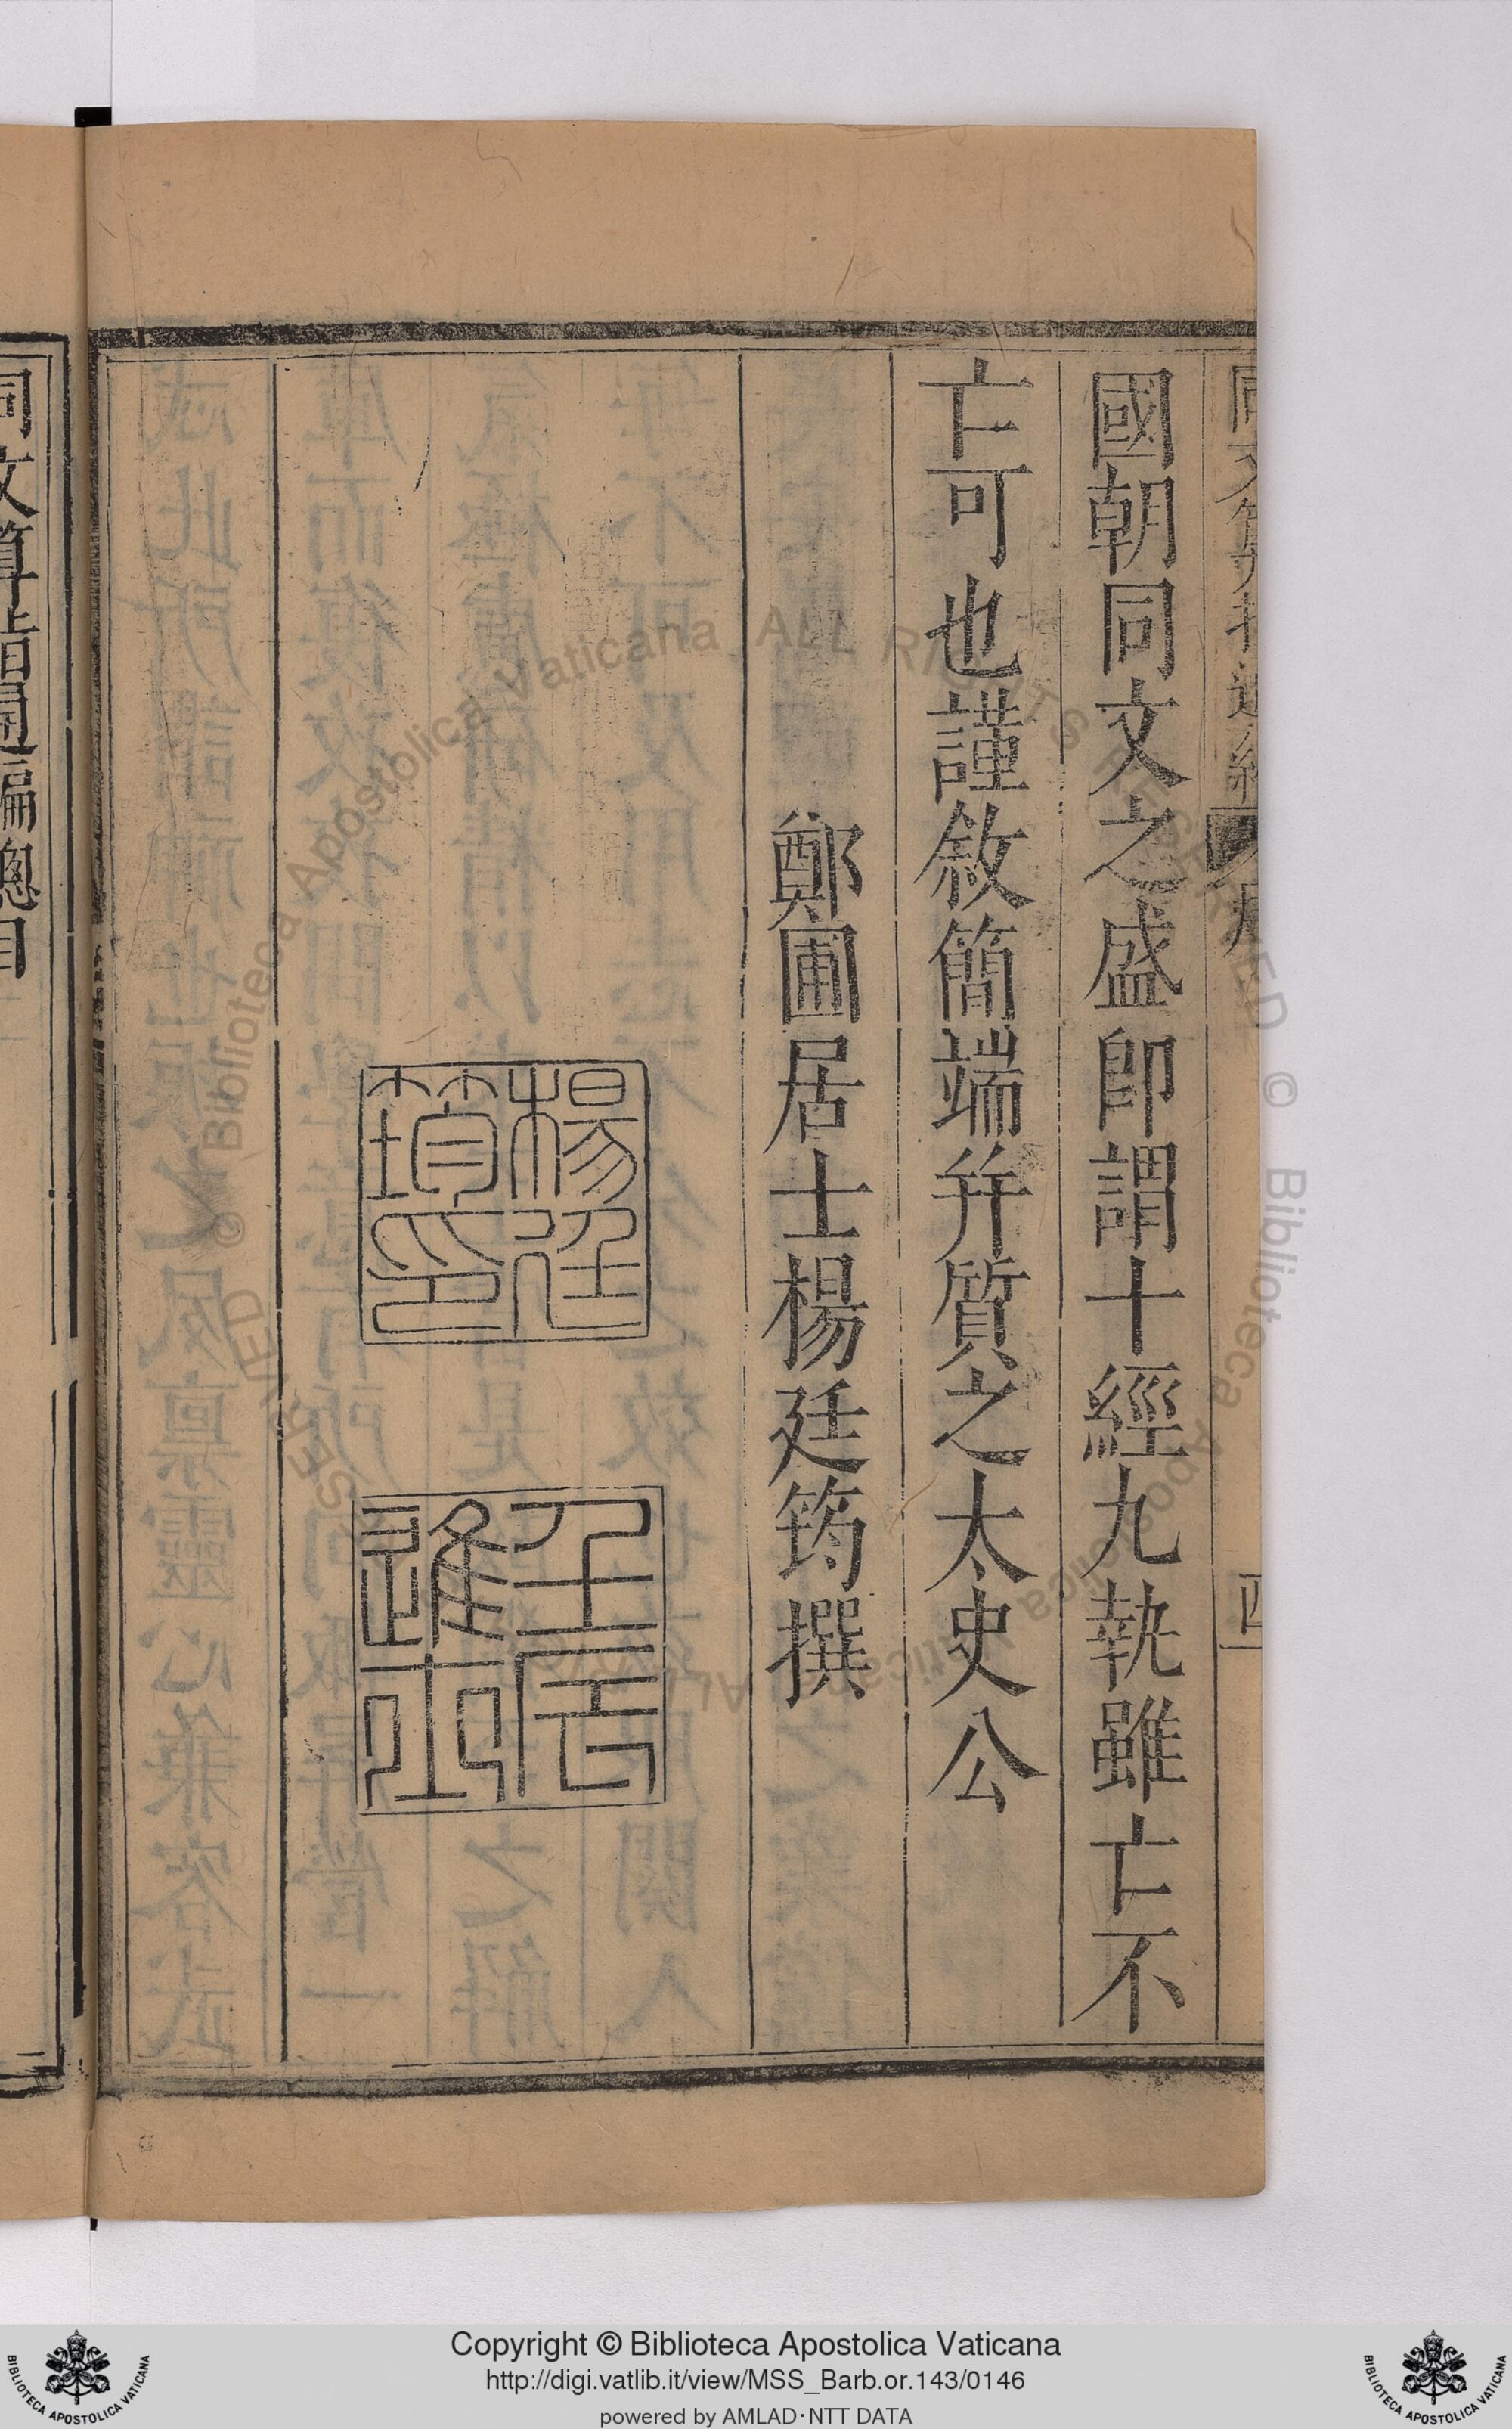 國朝同文之盛卽謂十經九執雖亡不
亡可也謹敘簡端并質之太史公
鄭圃居士楊廷筠撰
楊廷
筠印
壬辰
進士
同文算指通編總目
Copyright © Biblioteca Apostolica Vaticana
http://digi.vatlib.it/view/MSS_Barb.or.143/0146
powered by AMLAD·NTT DATA
BIBLIOTECA APOSTOLICA VATICANA
BIBLIOTECA APOSTOLICA VATICANA